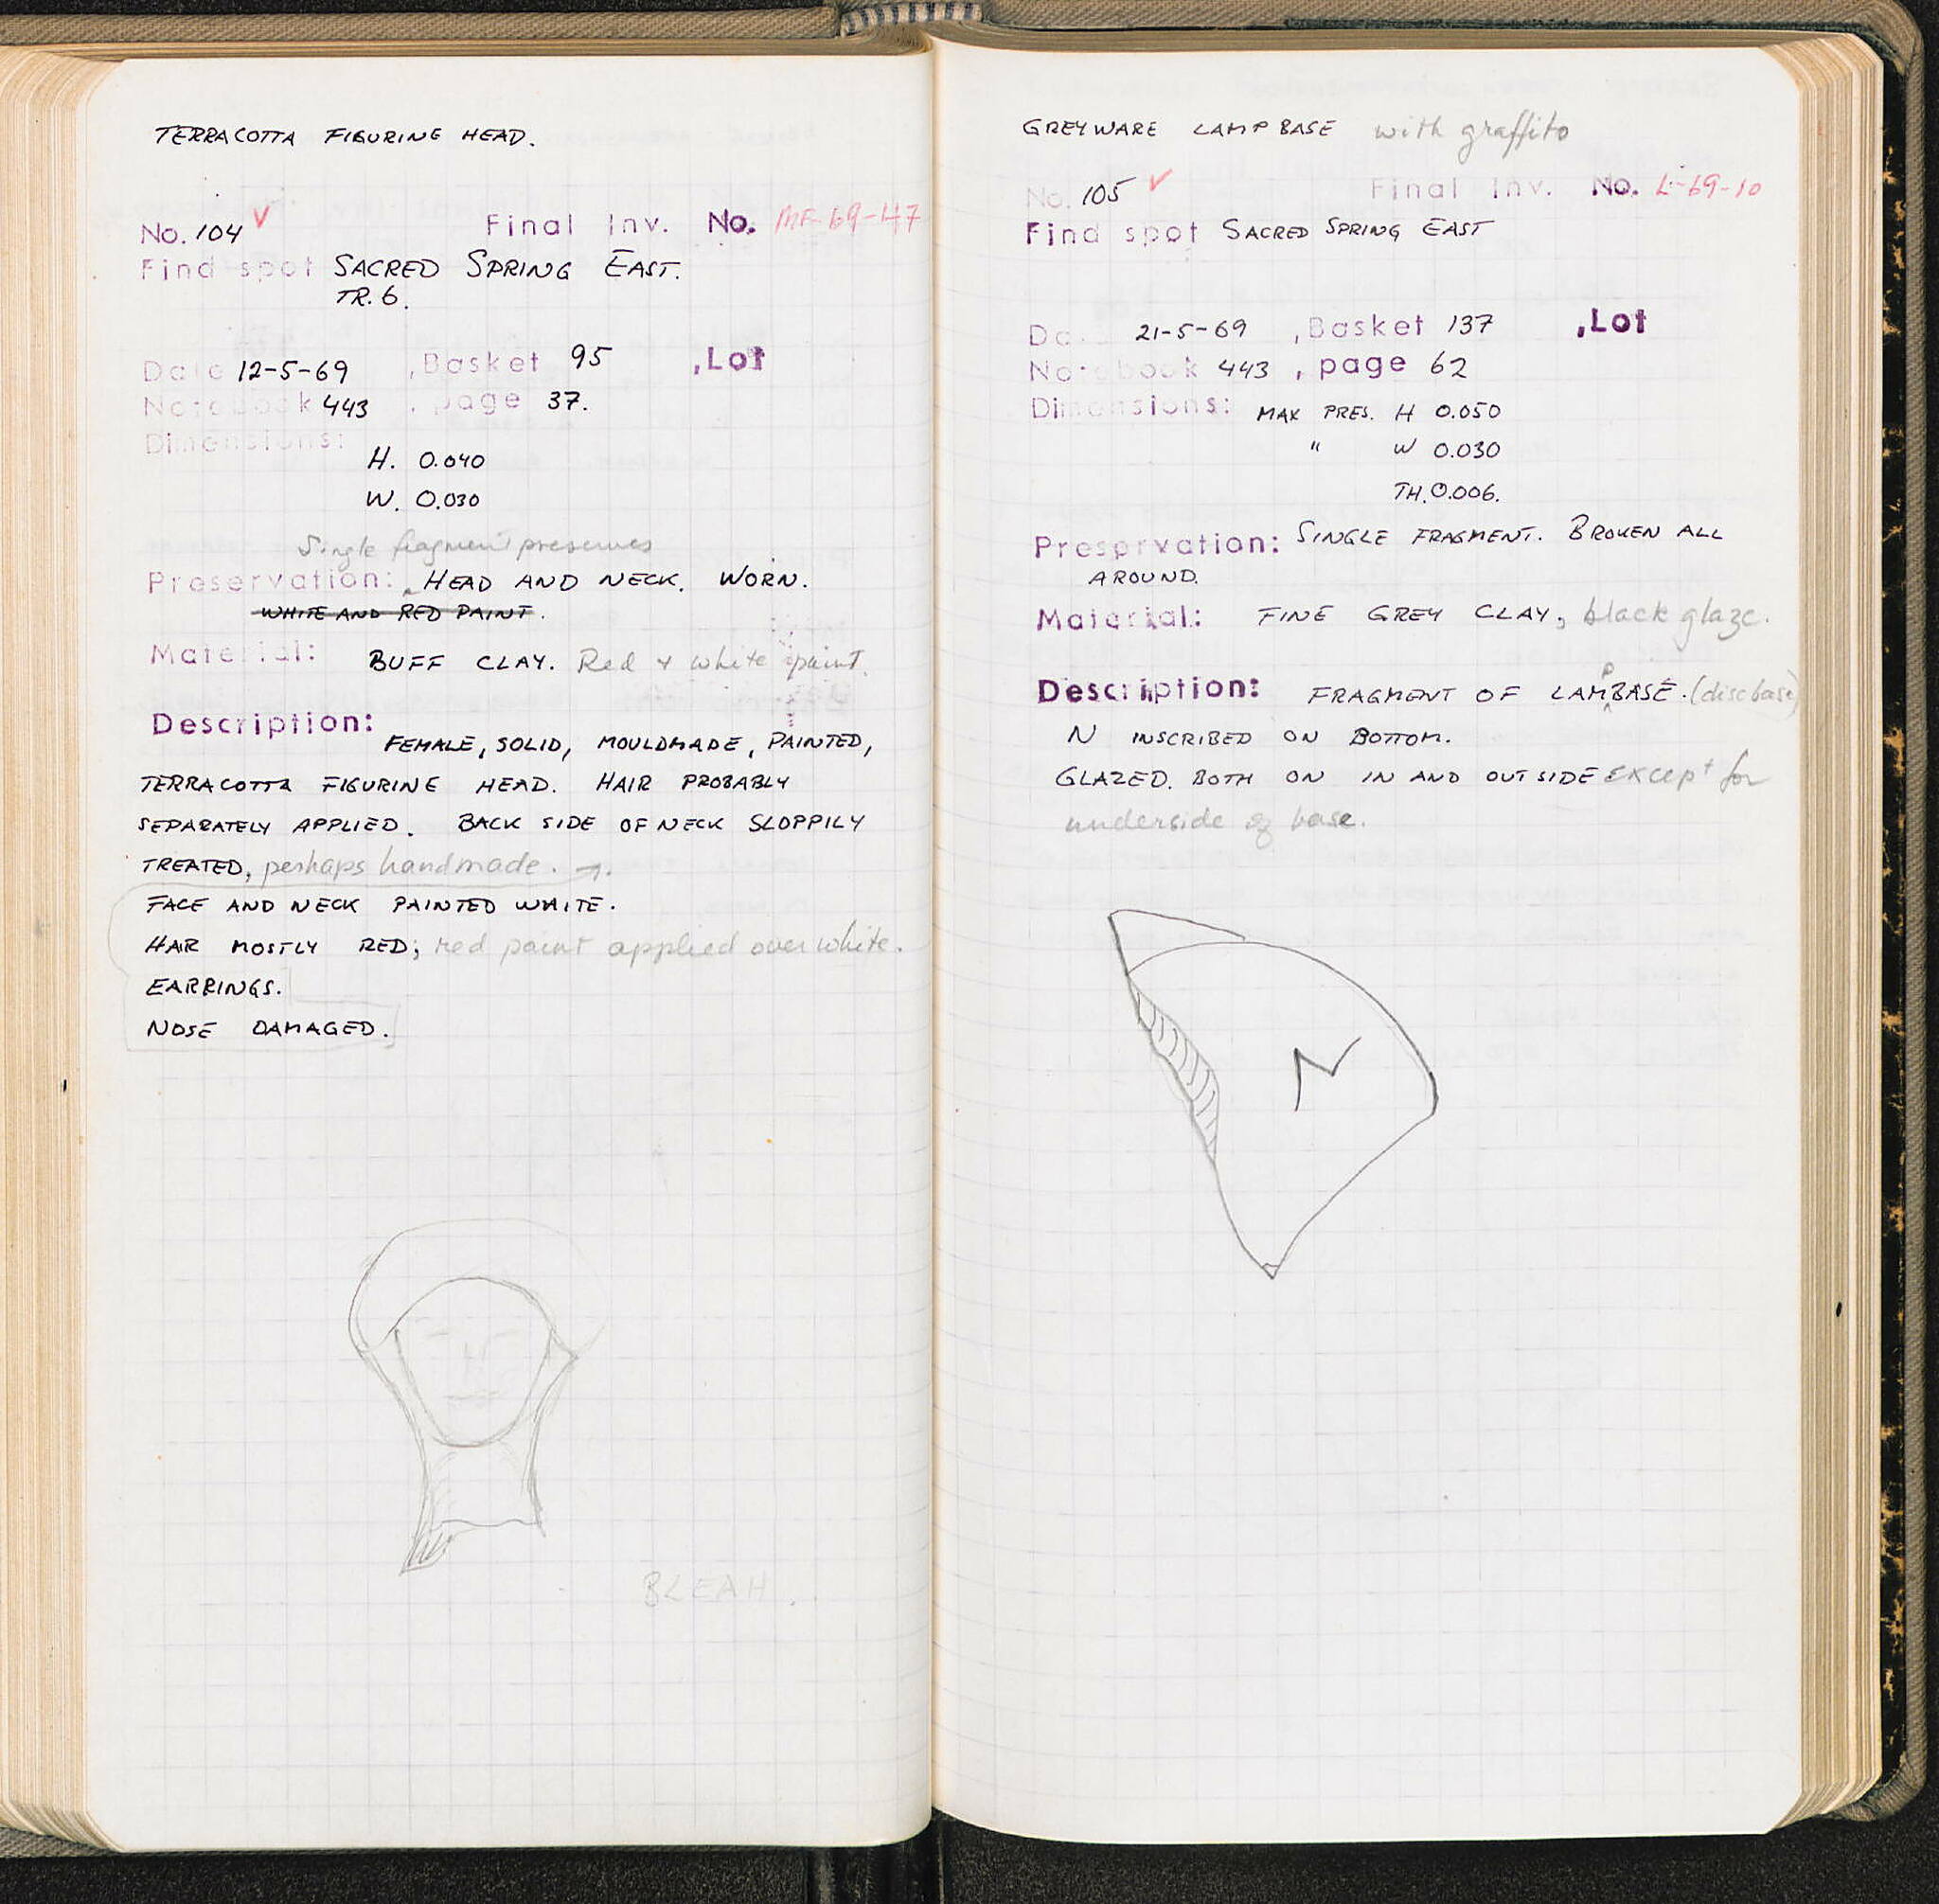 TERRACOTTA FIGURINE HEAD.
No. 104 ✓ Final Inv. No. MF-69-147
Find spot SACRED SPRING EAST.
TR. 6.
Date 12-5-69 , Basket 95 , Lot
Notebook 443 , page 37.
Dimensions:
H. 0.040
W. 0.030
Single fragment preserves
Preservation: HEAD AND NECK. WORN.
WHITE AND RED PAINT.
Material: BUFF CLAY. Red + white paint.
Description: FEMALE, SOLID, MOULDMADE, PAINTED,
TERRACOTTA FIGURINE HEAD. HAIR PROBABLY
SEPARATELY APPLIED. BACK SIDE OF NECK SLOPPILY
TREATED, perhaps handmade. →.
FACE AND NECK PAINTED WHITE.
HAIR MOSTLY RED; red paint applied over white.
EARRINGS.
NOSE DAMAGED.
BLEAH.
GREYWARE LAMP BASE with graffito
No. 105 ✓ Final Inv. No. L-69-10
Find spot SACRED SPRING EAST
Date 21-5-69 , Basket 137 , Lot
Notebook 443 , page 62
Dimensions: MAX PRES. H 0.050
" W 0.030
TH. 0.006.
Preservation: SINGLE FRAGMENT. BROKEN ALL
AROUND.
Material: FINE GREY CLAY, black glaze.
Description: FRAGMENT OF LAMPBASE. (disc base)
N INSCRIBED ON BOTTOM.
GLAZED. BOTH ON IN AND OUTSIDE except for
underside of base.
N